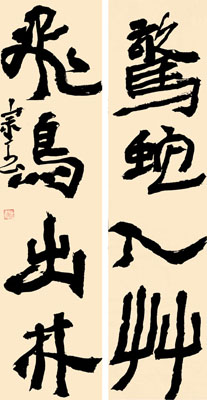 驚虵入艸
飛鳥出林